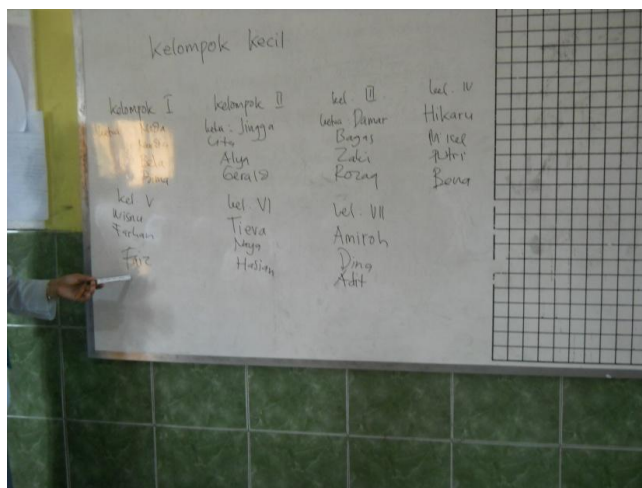 kelompok kecil
kelompok I
Bima
kelompok II
ketua : Jingga
Alya
Gerald
kel. III
ketua Damar
Bagas
Zaki
Rozaq
kel. IV
Hikaru
Putri
Bena
kel V
Wisnu
Farhan
kel. VI
Tieva
Naya
kel. VII
Amiroh
Dina
Adit